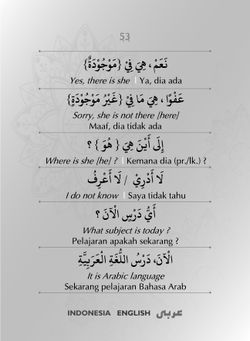 53
نَعَمْ ، هِيَ فِيْ {مَوْجُوْدَةٌ}
Yes, there is she | Ya, dia ada
عَفْوًا ، هِيَ مَا فِيْ {غَيْرُ مَوْجُوْدَةٍ}
Sorry, she is not there [here]
Maaf, dia tidak ada
إِلَى أَيْنَ هِيَ { هُوَ } ؟
Where is she [he] ? | Kemana dia (pr./lk.) ?
لَا أَدْرِيْ / لَا أَعْرِفُ
I do not know | Saya tidak tahu
أَيُّ دَرْسٍ الْآنَ ؟
What subject is today ?
Pelajaran apakah sekarang ?
الْآنَ، دَرْسُ اللُّغَةِ الْعَرَبِيَّةِ
It is Arabic language
Sekarang pelajaran Bahasa Arab
INDONESIA ENGLISH عربى